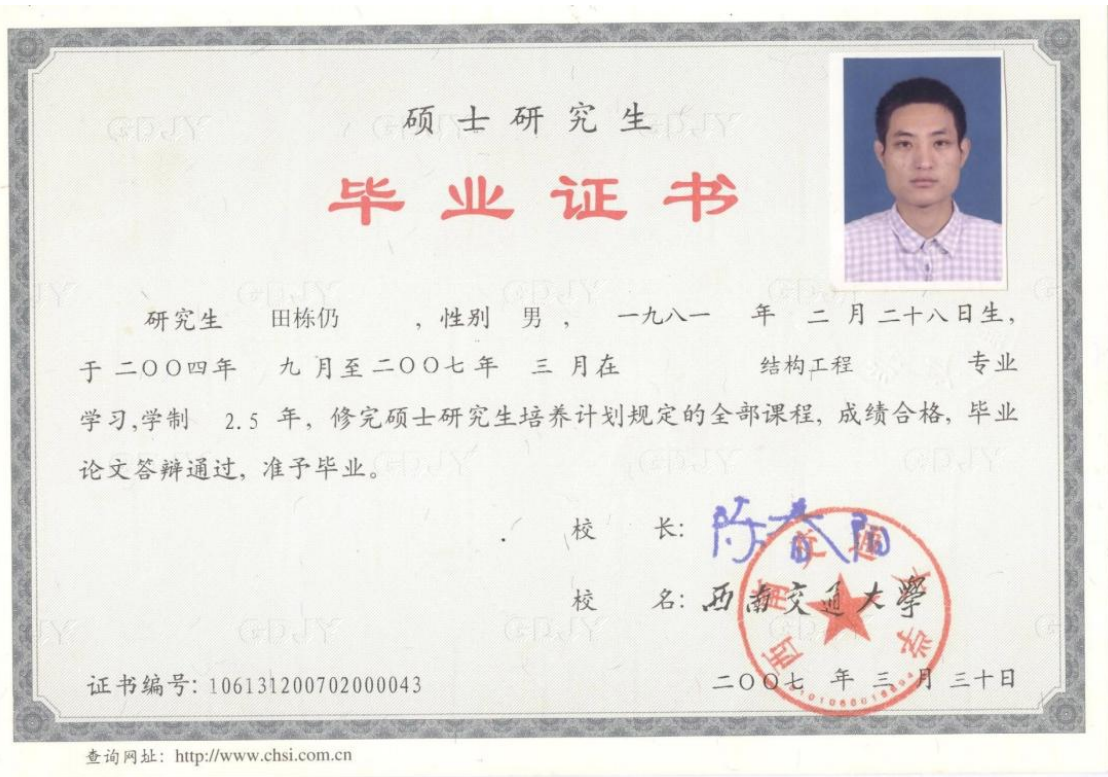 硕士研究生
毕业证书
研究生 田栋仍 ，性别 男 ， 一九八一 年 二 月 二十八日生，
于 二〇〇四年 九 月至 二〇〇七 年 三 月在 结构工程 专业
学习,学制 2.5 年，修完硕士研究生培养计划规定的全部课程，成绩合格，毕业
论文答辩通过，准予毕业。
校 长: 陈春阳
校 名: 西南交通大學
西南交通大学
证书编号: 106131200702000043
二〇〇七 年 三 月 三十日
查询网址: http://www.chsi.com.cn
GDJY